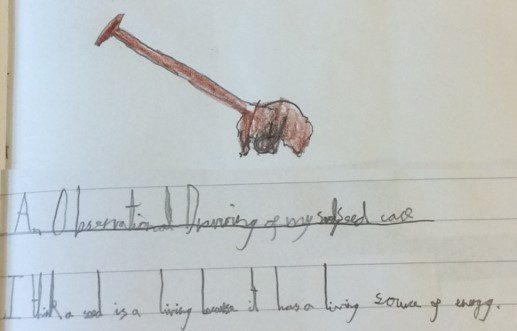 An Observational Drawing of my seed case
I think a seed is a living because it has a living source of energy.